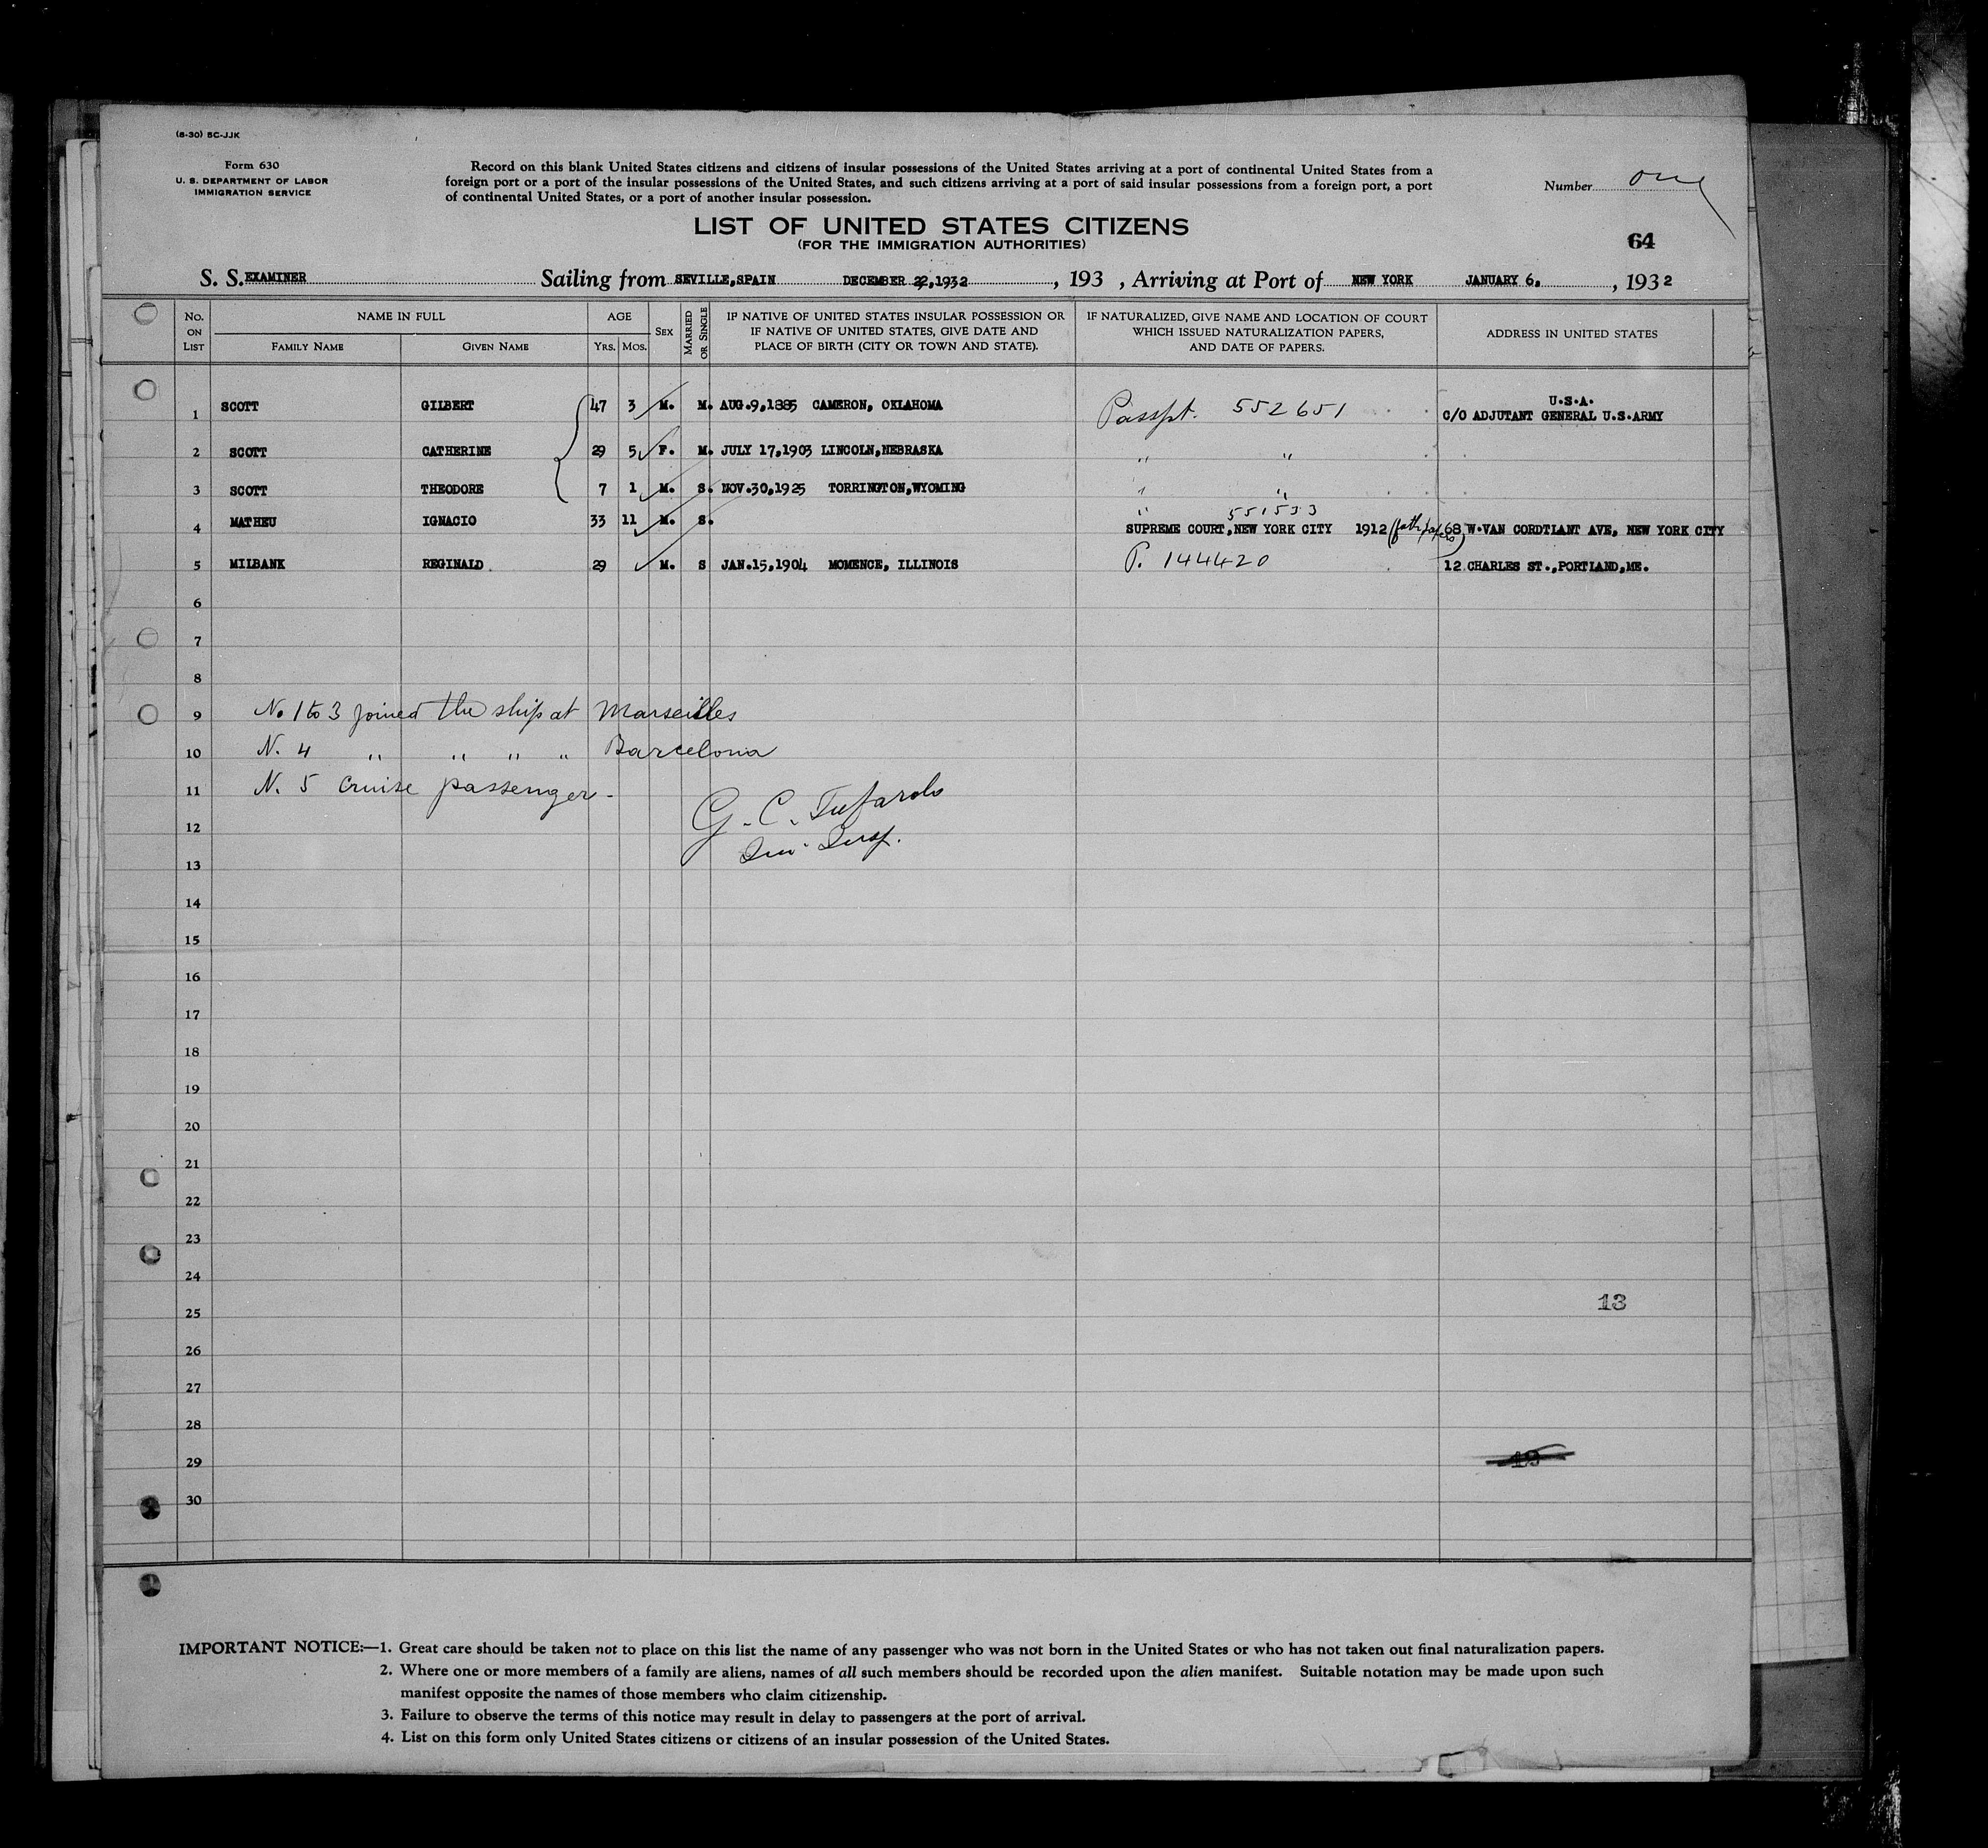 (8-30) BC-JJK
Form 630
U. S. DEPARTMENT OF LABOR
IMMIGRATION SERVICE
Record on this blank United States citizens and citizens of insular possessions of the United States arriving at a port of continental United States from a
foreign port or a port of the insular possessions of the United States, and such citizens arriving at a port of said insular possessions from a foreign port, a port
of continental United States, or a port of another insular possession.
Number one
LIST OF UNITED STATES CITIZENS
(FOR THE IMMIGRATION AUTHORITIES)
64
S. S. EXAMINER Sailing from SEVILLE,SPAIN DECEMBER 22,1932, 193 , Arriving at Port of NEW YORK JANUARY 6, , 1932
No. ON LIST NAME IN FULL FAMILY NAME GIVEN NAME AGE YRS. MOS. SEX MARRIED OR SINGLE IF NATIVE OF UNITED STATES INSULAR POSSESSION OR IF NATIVE OF UNITED STATES, GIVE DATE AND PLACE OF BIRTH (CITY OR TOWN AND STATE). IF NATURALIZED, GIVE NAME AND LOCATION OF COURT WHICH ISSUED NATURALIZATION PAPERS, AND DATE OF PAPERS. ADDRESS IN UNITED STATES
1 SCOTT GILBERT 47 3 M. M. AUG.9,1885 CAMERON, OKLAHOMA Passpt. 552651 U.S.A. C/O ADJUTANT GENERAL U.S.ARMY
2 SCOTT CATHERINE 29 5 F. M. JULY 17,1903 LINCOLN,NEBRASKA " "
3 SCOTT THEODORE 7 1 M. S. NOV.30,1925 TORRINGTON,WYOMING " "
" 551533
4 MATHEU IGNACIO 33 11 M. S. SUPREME COURT,NEW YORK CITY 1912 68 W.VAN CORDTLANT AVE, NEW YORK CITY
5 MILBANK REGINALD 29 M. S JAN.15,1904 MOMENCE, ILLINOIS P. 144420 12 CHARLES ST.,PORTLAND,ME.
6
7
8
9 No 1 to 3 joined the ship at Marseilles
10 N. 4 " " " " Barcelona
11 N. 5 Cruise passenger -
12 G. C. Tufarolo
13 Imm. Insp.
14
15
16
17
18
19
20
21
22
23
24
25 13
26
27
28
29
30
IMPORTANT NOTICE:—1. Great care should be taken not to place on this list the name of any passenger who was not born in the United States or who has not taken out final naturalization papers.
2. Where one or more members of a family are aliens, names of all such members should be recorded upon the alien manifest. Suitable notation may be made upon such
manifest opposite the names of those members who claim citizenship.
3. Failure to observe the terms of this notice may result in delay to passengers at the port of arrival.
4. List on this form only United States citizens or citizens of an insular possession of the United States.